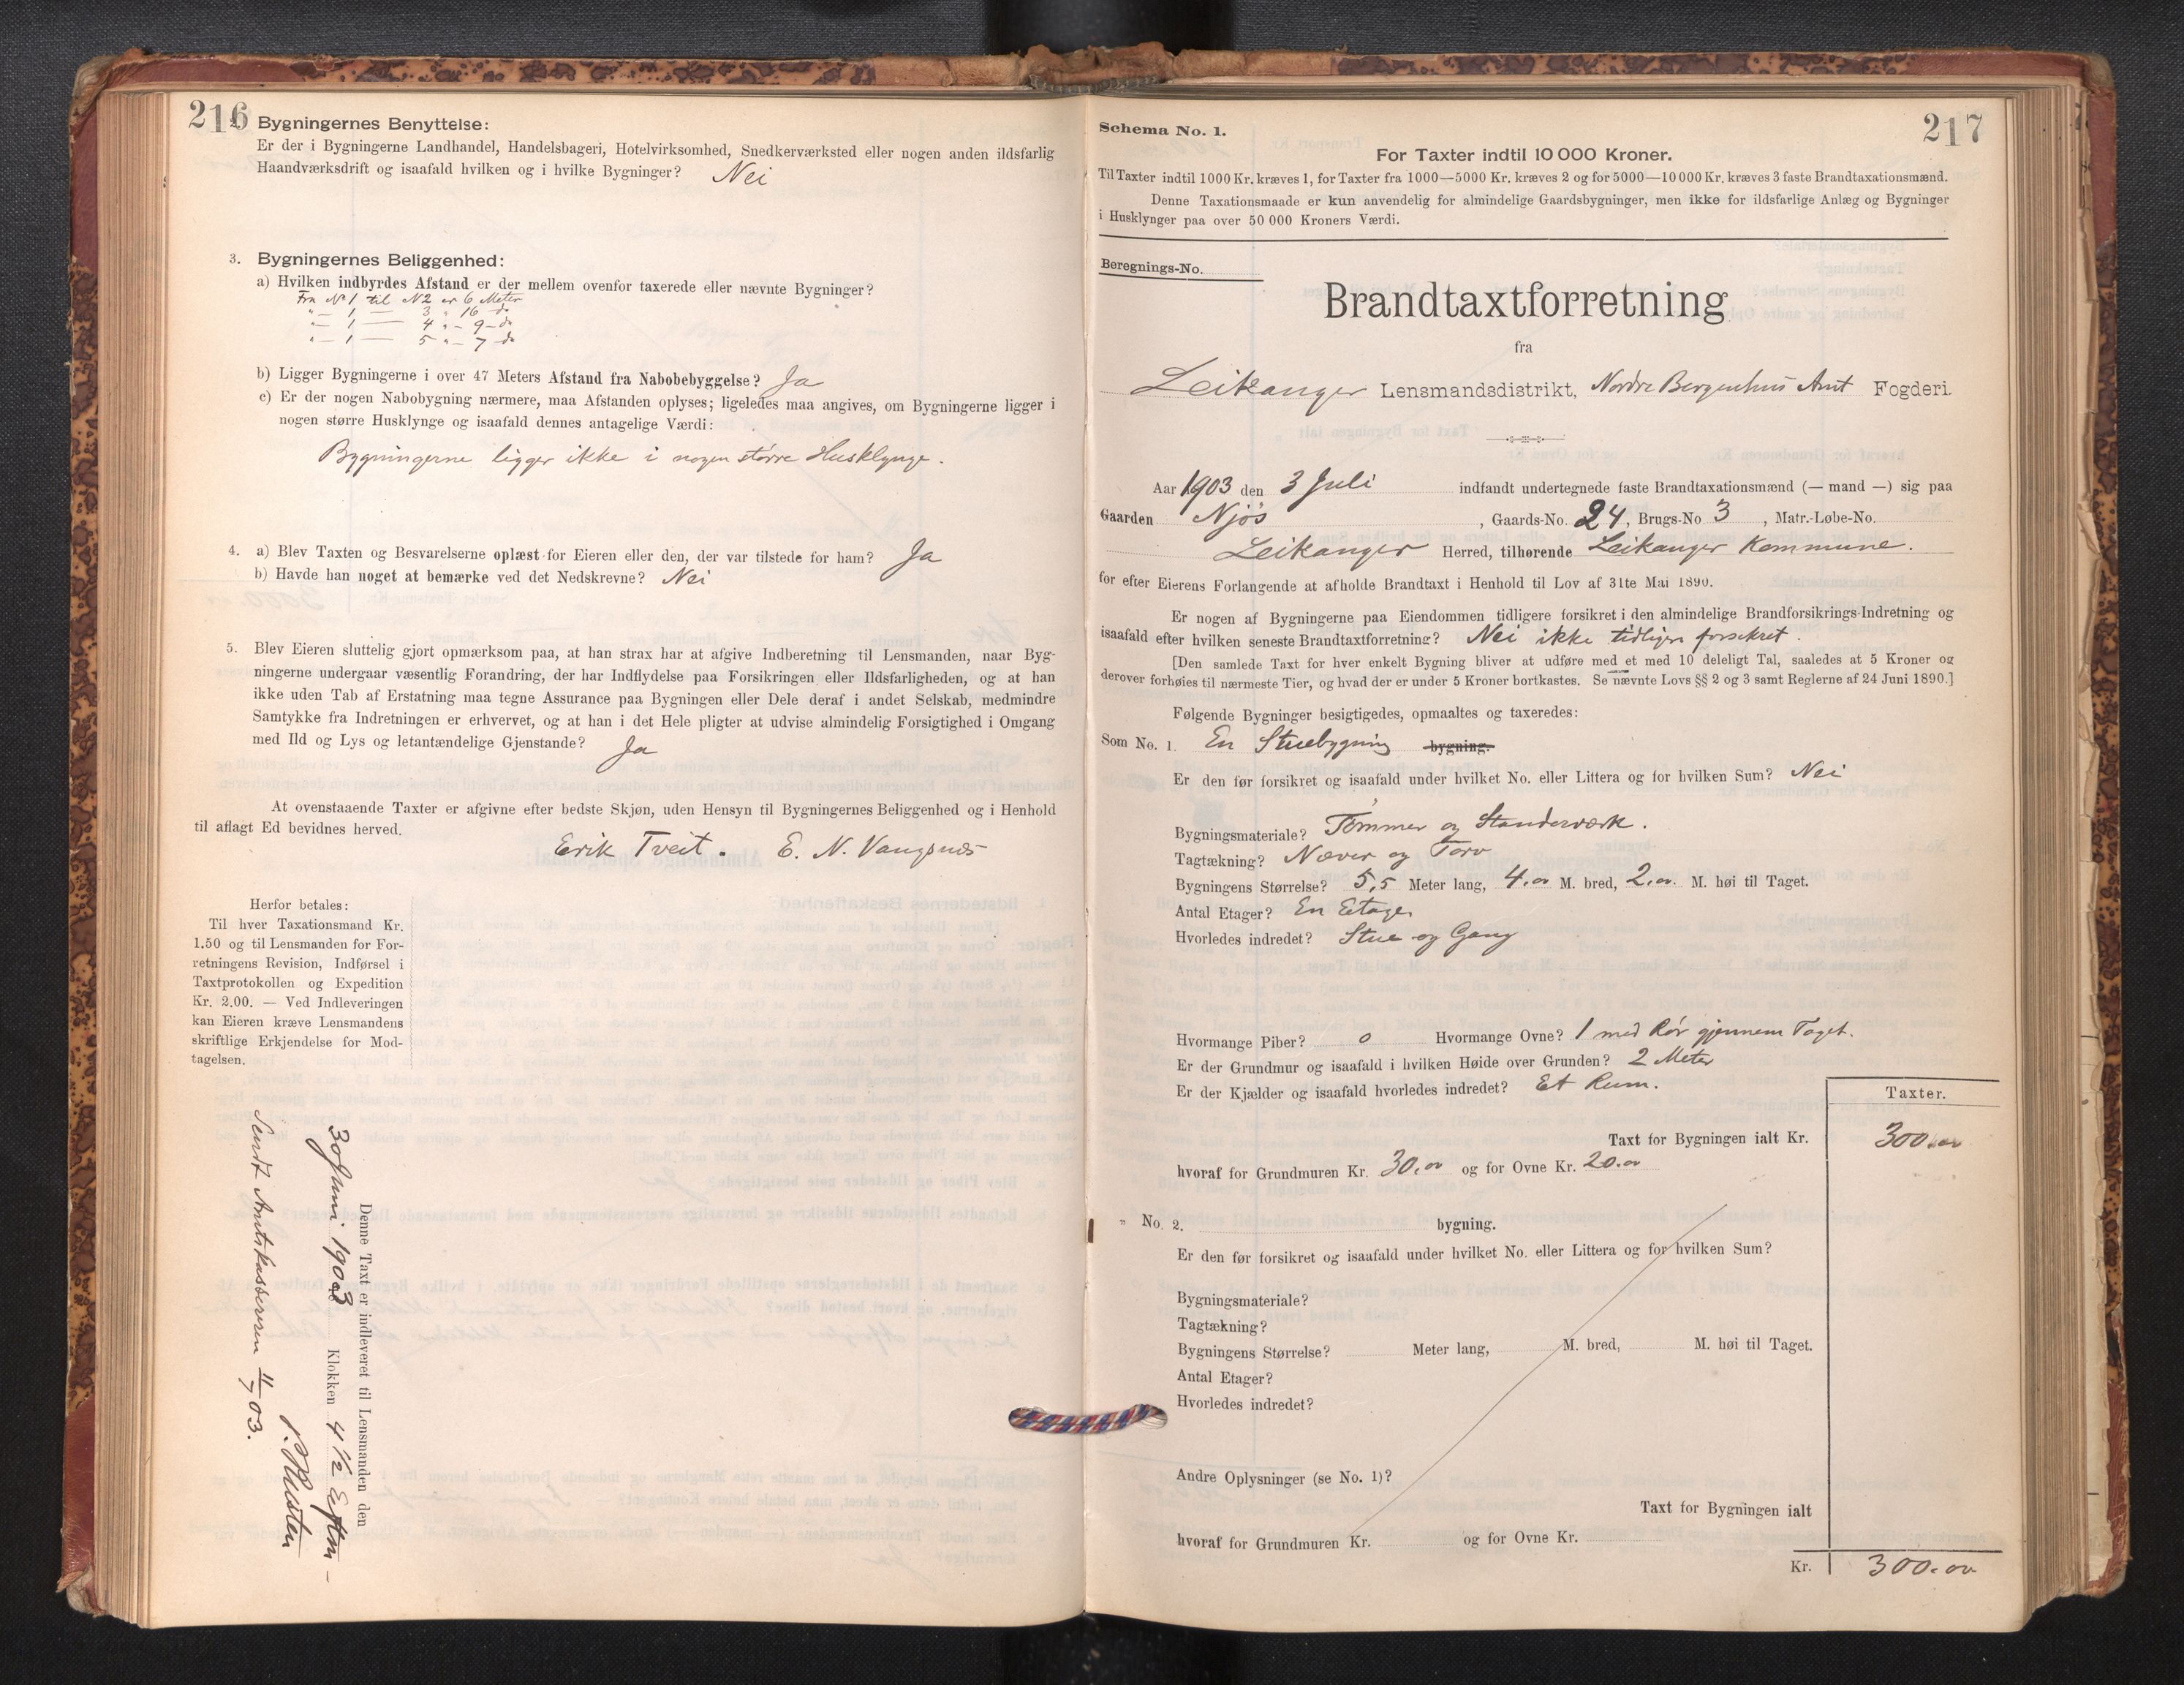 216
2. Bygningernes Benyttelse:
Er der i Bygningerne Landhandel, Handelsbageri, Hotelvirksomhed, Snedkerværksted eller nogen anden ildsfarlig
Haandværksdrift og isaafald hvilken og i hvilke Bygninger? Nei
3. Bygningernes Beliggenhed:
a) Hvilken indbyrdes Afstand er der mellem ovenfor taxerede eller nævnte Bygninger?
Fra No 1 til No 2 er 6 Meter
" — 1 — 3 " 16 - do
" — 1 — 4 " - 9 - do
" — 1 — 5 " - 7 - do
b) Ligger Bygningerne i over 47 Meters Afstand fra Nabobebyggelse? Ja
c) Er der nogen Nabobygning nærmere, maa Afstanden oplyses; ligeledes maa angives, om Bygningerne ligger i
nogen større Husklynge og isaafald dennes antagelige Værdi:
Bygningerne ligger ikke i nogen større Husklynge.
4. a) Blev Taxten og Besvarelserne oplæst for Eieren eller den, der var tilstede for ham? Ja
b) Havde han noget at bemærke ved det Nedskrevne? Nei
5. Blev Eieren sluttelig gjort opmærksom paa, at han strax har at afgive Indberetning til Lensmanden, naar Byg-
ningerne undergaar væsentlig Forandring, der har Indflydelse paa Forsikringen eller Ildsfarligheden, og at han
ikke uden Tab af Erstatning maa tegne Assurance paa Bygningen eller Dele deraf i andet Selskab, medmindre
Samtykke fra Indretningen er erhvervet, og at han i det Hele pligter at udvise almindelig Forsigtighed i Omgang
med Ild og Lys og letantændelige Gjenstande? Ja
At ovenstaaende Taxter er afgivne efter bedste Skjøn, uden Hensyn til Bygningernes Beliggenhed og i Henhold
til aflagt Ed bevidnes herved.
Erik Tveit. E. N. Vangsnes
Herfor betales:
Til hver Taxationsmand Kr.
1.50 og til Lensmanden for For-
retningens Revision, Indførsel i
Taxtprotokollen og Expedition
Kr. 2.00. — Ved Indleveringen
kan Eieren kræve Lensmandens
skriftlige Erkjendelse for Mod-
tagelsen.
Denne Taxt er indleveret til Lensmanden den
30 Juni 1903 Klokken 4 1/2 Eftm -
Sendt Amtskassereren 11/7 03.
217
Schema No. 1.
For Taxter indtil 10 000 Kroner.
Til Taxter indtil 1000 Kr. kræves 1, for Taxter fra 1000—5000 Kr. kræves 2 og for 5000—10 000 Kr. kræves 3 faste Brandtaxationsmænd.
Denne Taxationsmaade er kun anvendelig for almindelige Gaardsbygninger, men ikke for ildsfarlige Anlæg og Bygninger
i Husklynger paa over 50 000 Kroners Værdi.
Beregnings-No.
Brandtaxtforretning
fra
Leikanger Lensmandsdistrikt, Nordre Bergenhus Amt Fogderi.
Aar 1903 den 3 Juli indfandt undertegnede faste Brandtaxationsmænd (— mand —) sig paa
Gaarden Njøs, Gaards-No. 24, Brugs-No 3, Matr.-Løbe-No.
Leikanger Herred, tilhørende Leikanger Kommune.
for efter Eierens Forlangende at afholde Brandtaxt i Henhold til Lov af 31te Mai 1890.
Er nogen af Bygningerne paa Eiendommen tidligere forsikret i den almindelige Brandforsikrings-Indretning og
isaafald efter hvilken seneste Brandtaxtforretning? Nei ikke tidligere forsekret.
[Den samlede Taxt for hver enkelt Bygning bliver at udføre med et med 10 deleligt Tal, saaledes at 5 Kroner og
derover forhøies til nærmeste Tier, og hvad der er under 5 Kroner bortkastes. Se nævnte Lovs §§ 2 og 3 samt Reglerne af 24 Juni 1890.]
Følgende Bygninger besigtigedes, opmaaltes og taxeredes:
Som No. 1. En Stuebygning bygning.
Er den før forsikret og isaafald under hvilket No. eller Littera og for hvilken Sum? Nei
Bygningsmateriale? Tømmer og Standerværk.
Tagtækning? Næver og Torv
Bygningens Størrelse? 5,5 Meter lang, 4.00 M. bred, 2.00. M. høi til Taget.
Antal Etager? En Etage
Hvorledes indredet? Stue og Gang
Hvormange Piber? 0 Hvormange Ovne? 1 med Rør gjennem Taget.
Er der Grundmur og isaafald i hvilken Høide over Grunden? 2 Meter
Er der Kjælder og isaafald hvorledes indredet? Et Rum.
Taxter.
Taxt for Bygningen ialt Kr. 300.00
hvoraf for Grundmuren Kr. 30.00 og for Ovne Kr. 20.00
" No. 2. bygning.
Er den før forsikret og isaafald under hvilket No. eller Littera og for hvilken Sum?
Bygningsmateriale?
Tagtækning?
Bygningens Størrelse? Meter lang, M. bred, M. høi til Taget.
Antal Etager?
Hvorledes indredet?
Andre Oplysninger (se No. 1)?
Taxt for Bygningen ialt
hvoraf for Grundmuren Kr. og for Ovne Kr.
Kr. 300.00